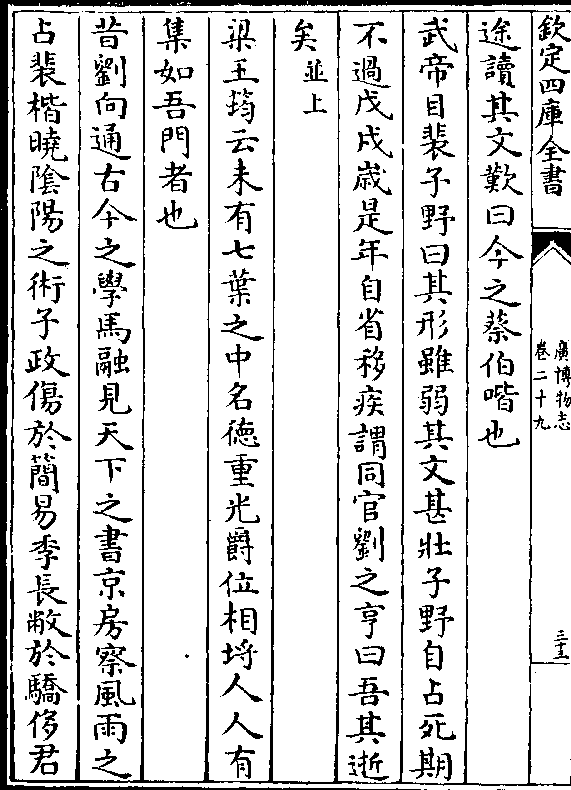 欽定四庫全書
廣博物志
卷二十九
三十五
途讀其文歎曰今之蔡伯喈也
武帝目裴子野曰其形雖弱其文甚壯子野自占死期
不過戊戌歲是年自省移疾謂同官劉之亨曰吾其逝
矣並上
梁王筠云未有七葉之中名德重光爵位相埒人人有
集如吾門者也
昔劉向通古今之學馬融見天下之書京房察風雨之
占裴楷曉陰陽之術子政傷於簡易季長敝於驕侈君